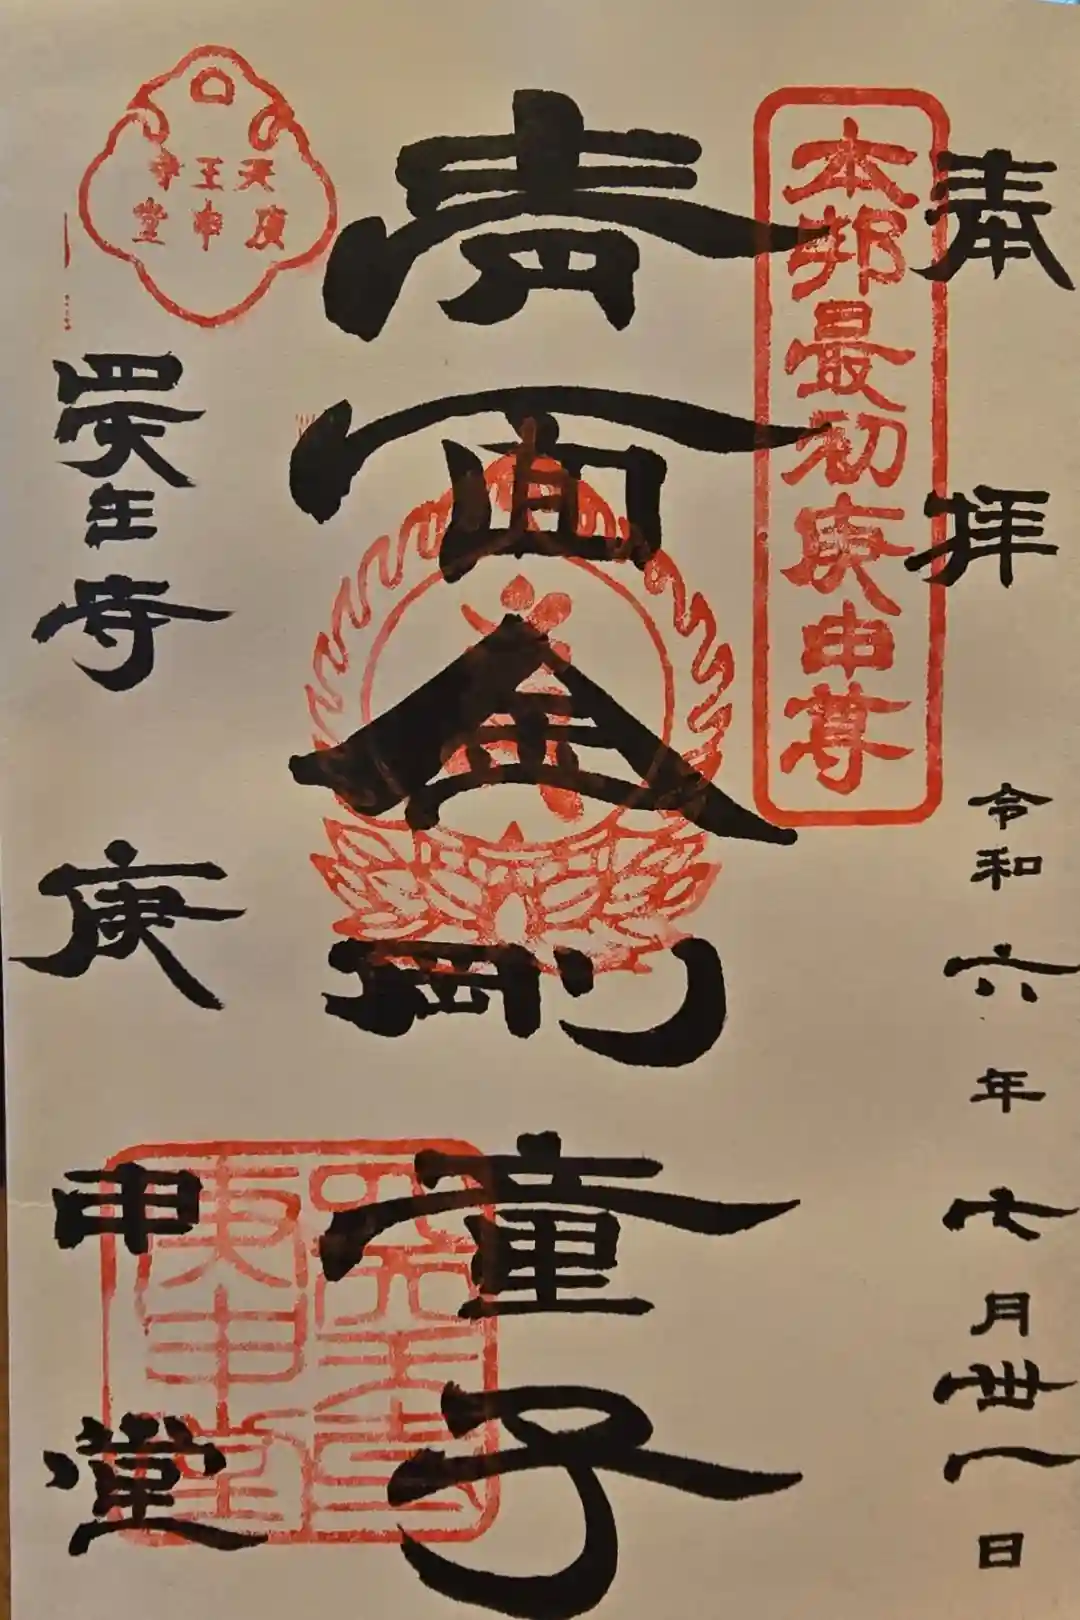 奉拝
令和六年七月丗一日
本邦最初庚申尊
青面金剛童子
天王寺
庚申堂
四天王寺
庚申堂
四天王寺
庚申堂